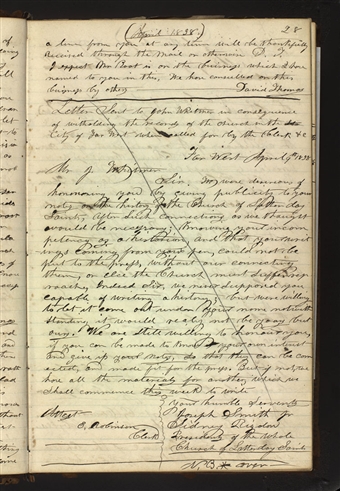 (April 1838.) 28
a line from you at any time will be thankfully
received through the mail or otherwise D. T.
I expect Bro Root is on the business which I have
named to you in this, We have counselled on this
business by others David Thomas
Letter Sent to John Whitmer in consequence
of witholding the records of the church in the
City of Far West when called for by the Clerk &c
Far West April 9th 1838
Mr J. Whitmer
Sir. We were desirous of
honouring you by giving publicity to your
notes on the history of the Church of Latter day
Saints, after such corrections as we thought
would be necessary; knowing your incom
petency as a historian, and that your writ
ings coming from your pen, could not be
put to the press, without our correcting
them, or else the Church must suffer re
proach; Indeed Sir, we never supposed you
capable of writing a history; but were willing
to let it come out under your name notwith
standing it would really not be yours but
ours. We are still willing to honour you,
if you can be made to know your own interest
and give up your notes, so that they can be cor
rected, and made fit for the press. But if not, we
have all the materials for another, which we
shall commence this week to write
Your humble Servants
Attest Joseph Smith Jr
E. Robinson Sidney Rigdon
Clerk Presidents of the Whole
Church of Latterday Saints
N. B. over